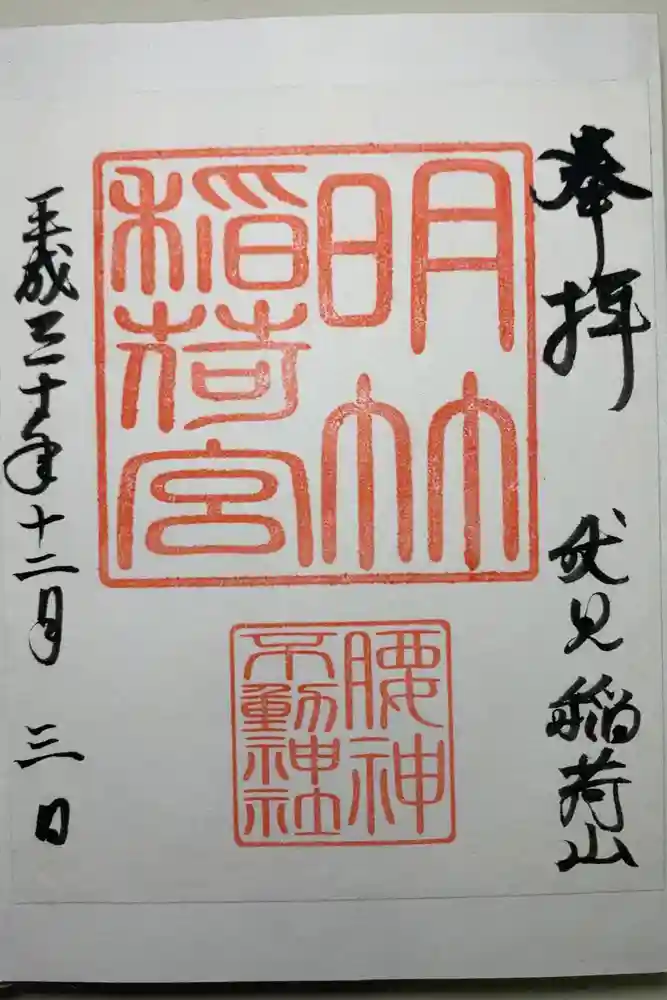 奉拝
伏見稲荷山
明竹
稲荷宮
腰神
不動神社
平成三十年十二月三日